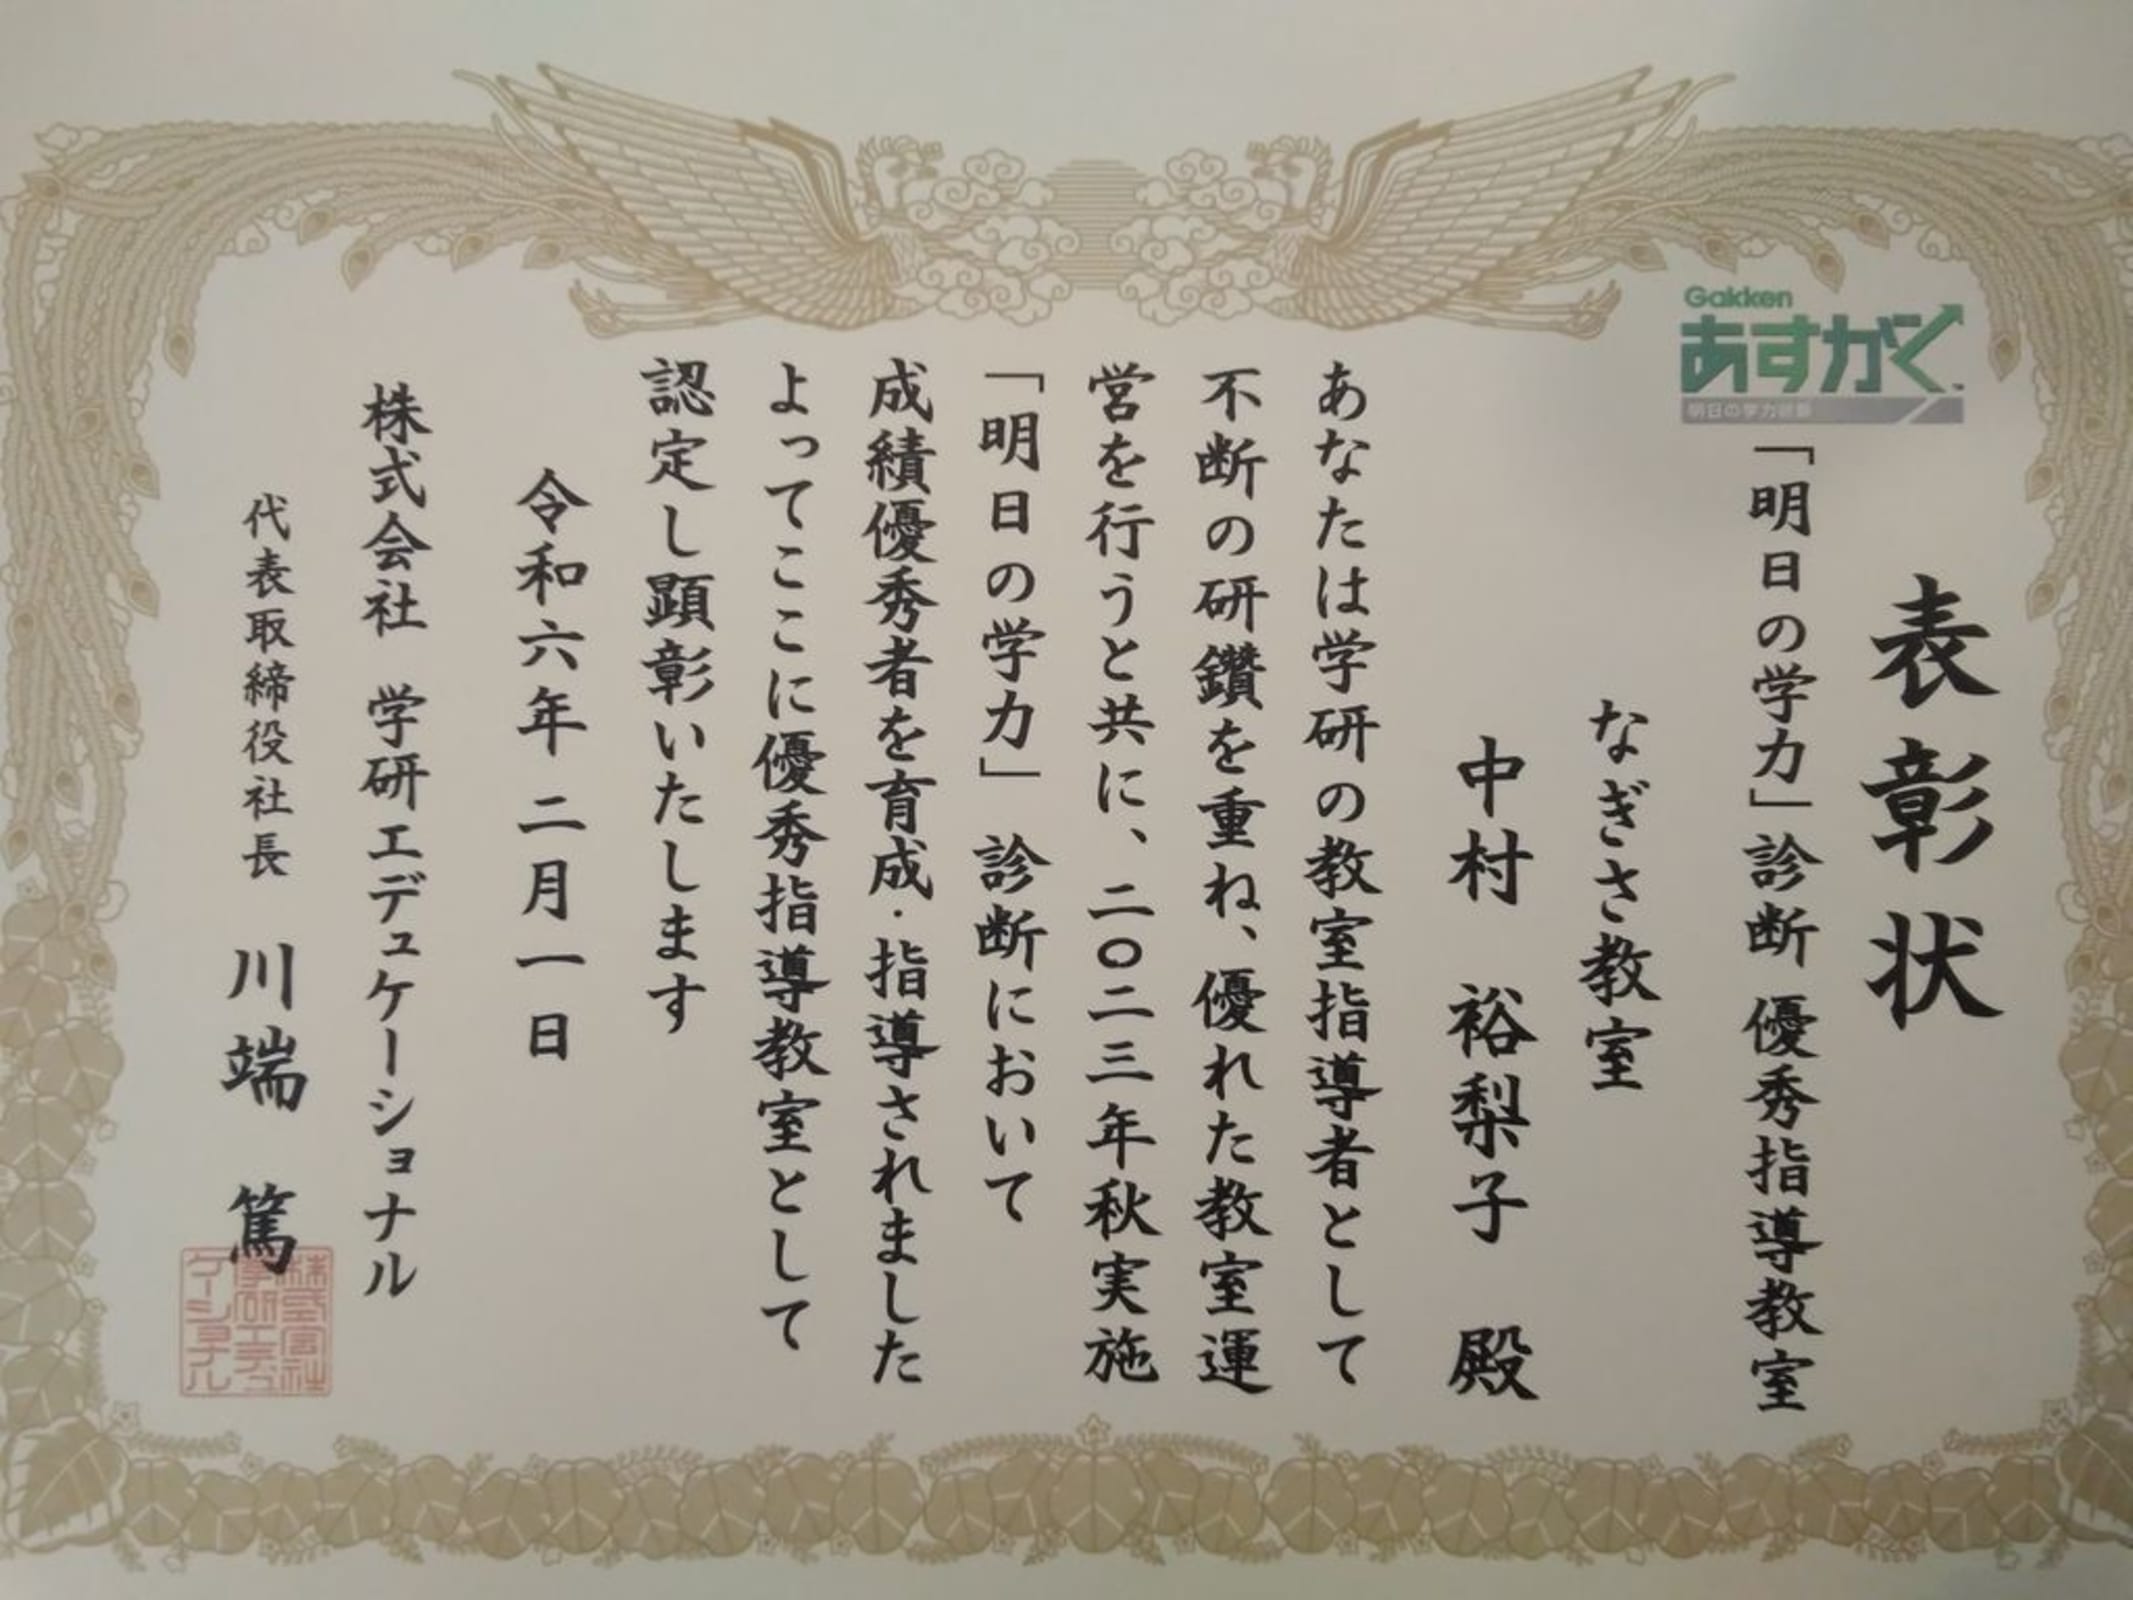 Gakken
あすがく
明日の学力診断
表彰状
「明日の学力」診断 優秀指導教室
なぎさ教室
中村 裕梨子 殿
あなたは学研の教室指導者として
不断の研鑽を重ね、優れた教室運
営を行うと共に、二〇二三年秋実施
「明日の学力」診断において
成績優秀者を育成・指導されました
よってここに優秀指導教室として
認定し顕彰いたします
令和六年二月一日
株式会社 学研エデュケーショナル
代表取締役社長 川端 篤
株式会社
学研エデュ
ケーショナル